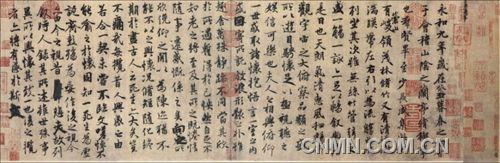 永和九年歲在癸丑暮春之初會
于會稽山陰之蘭亭脩稧事
也羣賢畢至少長咸集此地
有峻領茂林脩竹又有清流激
湍暎帶左右引以為流觴曲水
列坐其次雖無絲竹管弦之
盛一觴一詠亦足以暢敘幽情
是日也天朗氣清惠風和暢仰
觀宇宙之大俯察品類之盛
所以遊目騁懷足以極視聽之
娛信可樂也夫人之相與俯仰
一世或取諸懷抱悟言一室之內
或因寄所託放浪形骸之外雖
趣舍萬殊靜躁不同當其欣
於所遇暫得於己怏然自足不
知老之將至及其所之既惓情
隨事遷感慨係之矣向之所欣
俛仰之間以為陳迹猶不
能不以之興懷況脩短隨化終
期於盡古人云死生亦大矣豈
不痛哉每攬昔人興感之由
若合一契未嘗不臨文嗟悼不
能喻之於懷固知一死生為虛
誕齊彭殤為妄作後之視今
亦由今之視昔悲夫故列
敘時人錄其所述雖世殊事
異所以興懷其致一也後之攬
者亦將有感於斯文
CNMN.COM.CN